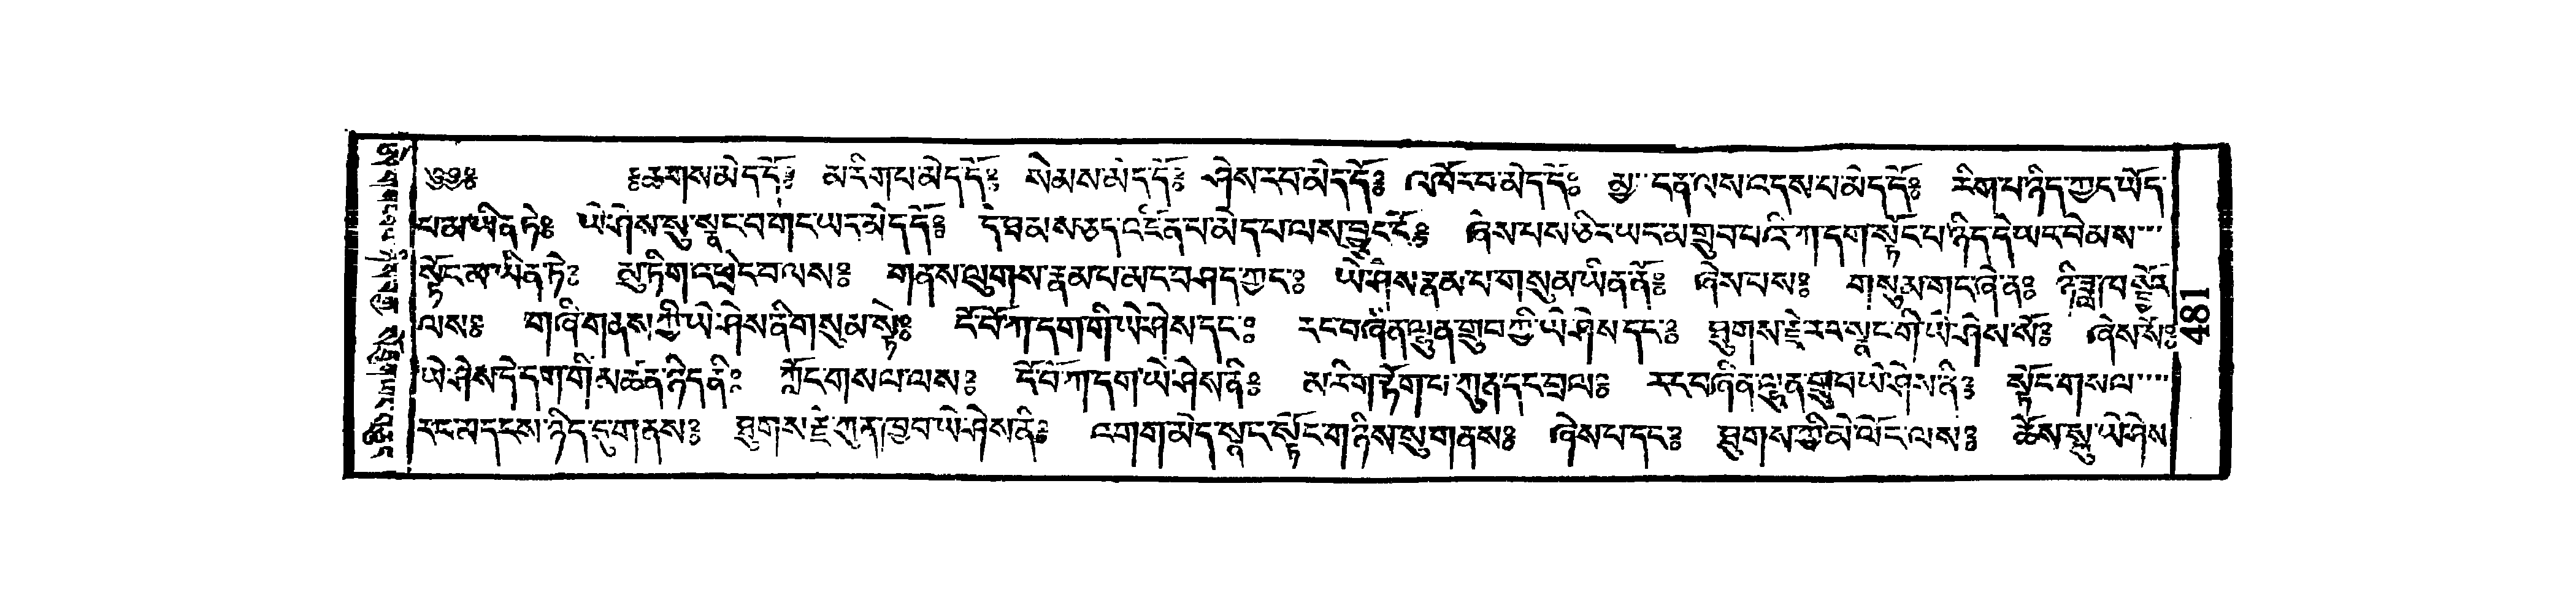 ༄༅༔ ༔ཆགས་མེད་དོ༔ མ་རིག་པ་མེད་དོ༔ སེམས་མེད་དོ༔ ཤེས་རབ་མེད་དོ༔ འཁོར་བ་མེད་དོ༔ མྱ་ངན་ལས་འདས་པ་མེད་དོ༔ རིག་པ་ཉིད་ཀྱང་ཡོད་
པ་མ་ཡིན་ཏེ༔ ཡེ་ཤེས་སུ་སྣང་བ་གང་ཡང་མེད་དོ༔ དེ་ཐམས་ཅད་འཛིན་པ་མེད་པ་ལས་བྱུང་ངོ༔ ཞེས་པས་ཅིར་ཡང་མ་གྲུབ་པའི་ཀ་དག་སྟོང་པ་ཉིད་དེ་ཡང་བེམས་
སྟོང་མ་ཡིན་ཏེ༔ མུ་ཏིག་འཕྲེང་བ་ལས༔ གནས་ལུགས་རྣམ་པ་མང་བཤད་ཀྱང་༔ ཡེ་ཤེས་རྣམ་པ་གསུམ་ཡིན་ནོ༔ ཞེས་པས༔ གསུམ་གང་ཞེ་ན༔ ཉི་ཟླ་ཁ་སྦྱོར་
ལས༔ གཞི་གནས་ཀྱི་ཡེ་ཤེས་ནི་གསུམ་སྟེ༔ ངོ་བོ་ཀ་དག་གི་ཡེ་ཤེས་དང་༔ རང་བཞིན་ལྷུན་གྲུབ་ཀྱི་ཡེ་ཤེས་དང་༔ ཐུགས་རྗེ་རབ་སྣང་གི་ཡེ་ཤེས་སོ༔ ཞེས་སོ༔
ཡེ་ཤེས་དེ་དག་གི་མཚན་ཉིད་ནི༔ ཀློང་གསལ་ལས༔ ངོ་བོ་ཀ་དག་ཡེ་ཤེས་ནི༔ མ་རིག་རྟོག་པ་ཀུན་དང་བྲལ༔ རང་བཞིན་ལྷུན་གྲུབ་ཡེ་ཤེས་ནི༔ སྟོང་གསལ་
རང་མདངས་ཉིད་དུ་གནས༔ ཐུགས་རྗེ་ཀུན་ཁྱབ་ཡེ་ཤེས་ནི༔ འགག་མེད་སྣང་སྟོང་གཉིས་སུ་གནས༔ ཞེས་པ་དང་༔ ཐུགས་ཀྱི་མེ་ལོང་ལས༔ ཆོས་སྐུ་ཡེ་ཤེས
184